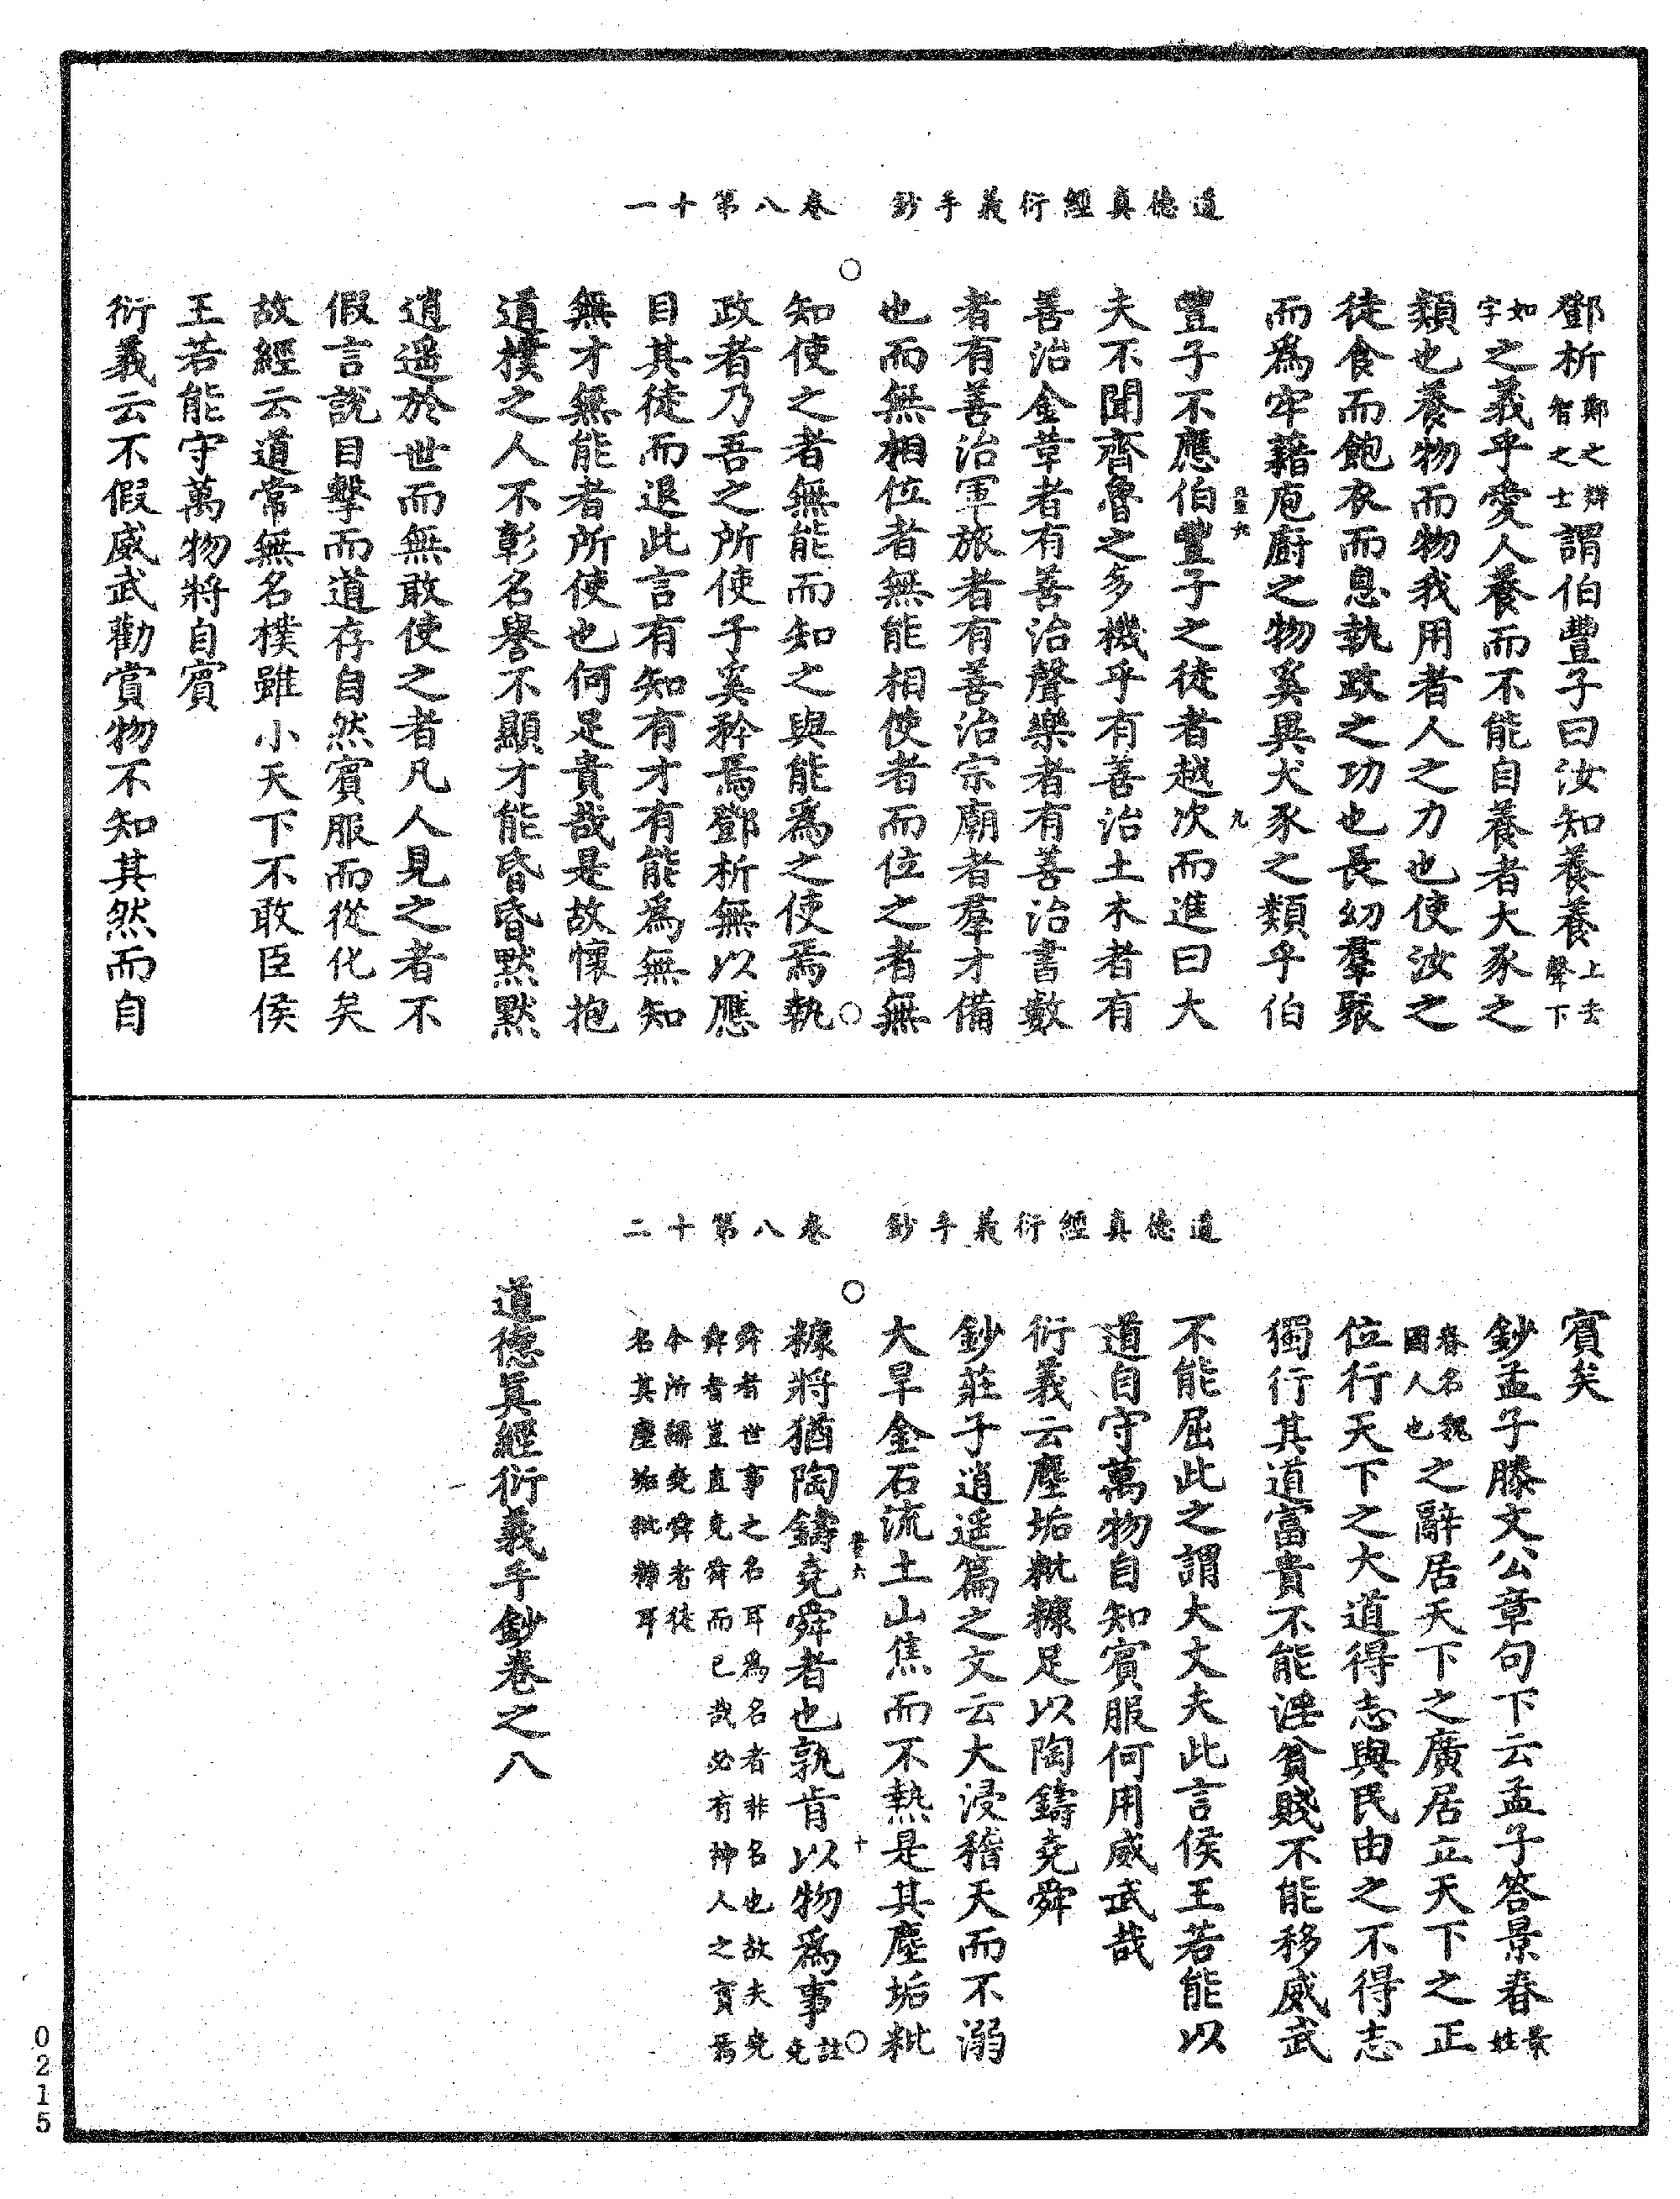 道德真經衍義手鈔　卷八第十一
鄧析鄭之辯智之士謂伯豐子曰汝知養養上去聲下
如字之義乎愛人養而不能自養者犬豕之
類也養物而物我用者人之力也使汝之
徒食而飽衣而息執政之功也長幼羣聚
而爲牢藉庖廚之物奚異犬豕之類乎伯
九
豐子不應伯豐子之徒者越次而進曰大
夫不聞齊魯之多機乎有善治土木者有
善治金革者有善治聲樂者有善治書數
者有善治軍旅者有善治宗廟者羣才備
也而無相位者無能相使者而位之者無
知使之者無能而知之與能爲之使焉執
政者乃吾之所使子奚矜焉鄧析無以應
目其徒而退此言有知有才有能爲無知
無才無能者所使也何足貴哉是故懷抱
道樸之人不彰名譽不顯才能昏昏默默
逍遥於世而無敢使之者凡人見之者不
假言說目擊而道存自然賓服而從化矣
故經云道常無名樸雖小天下不敢臣侯
王若能守萬物將自賓
衍義云不假威武勸賞物不知其然而自
道德真經衍義手鈔　卷八第十二
賓矣
鈔孟子滕文公章句下云孟子答景春景姓
春名魏國人也之辭居天下之廣居立天下之正
位行天下之大道得志與民由之不得志
獨行其道富貴不能淫貧賤不能移威武
不能屈此之謂大丈夫此言侯王若能以
道自守萬物自知賓服何用威武哉
衍義云塵垢粃糠足以陶鑄堯舜
鈔莊子逍遥篇之文云大浸稽天而不溺
大旱金石流土山焦而不熱是其塵垢粃
十
糠將猶陶鑄堯舜者也孰肯以物爲事註堯
舜者世事之名耳爲名者非名也故夫堯
舜者豈直堯舜而已哉必有神人之實焉
今所稱堯舜者徒
名其塵垢粃糠耳
道德眞經衍義手鈔卷之八
0215